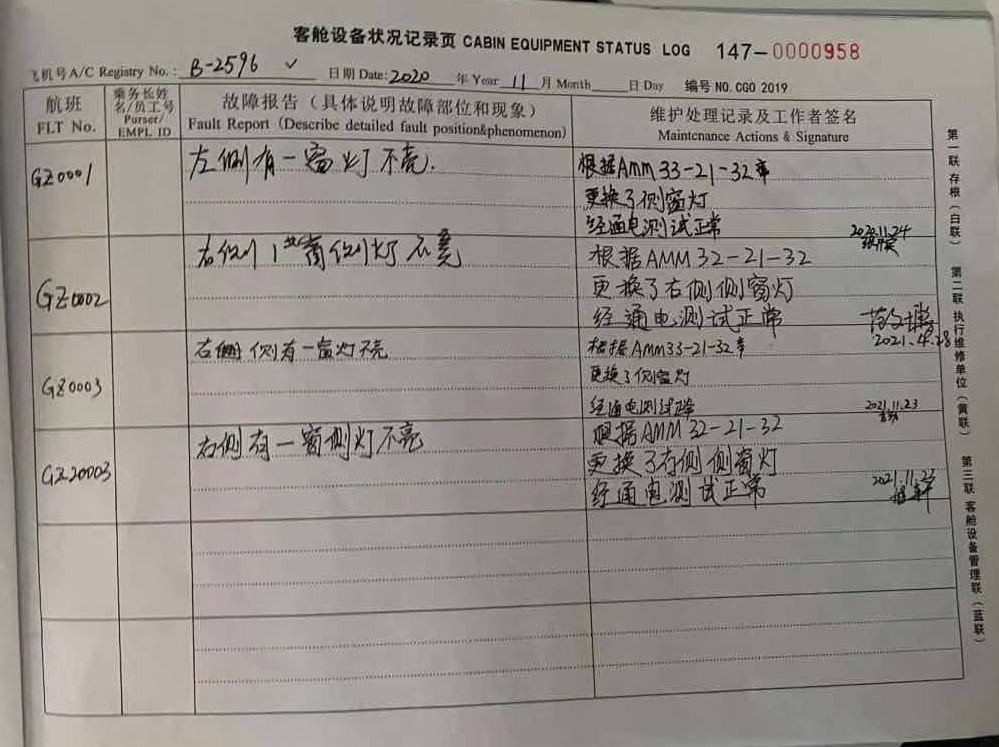 客舱设备状况记录页 CABIN EQUIPMENT STATUS LOG 147-0000958
飞机号A/C Registry No.: B-2596 ✓ 日期 Date: 2020 年 Year 11 月 Month 日 Day 编号 NO. CGO 2019
航班 FLT No.
乘务长姓名/员工号 Purser/ EMPL. ID
故障报告（具体说明故障部位和现象）
Fault Report (Describe detailed fault position&phenomenon)
维护处理记录及工作者签名
Maintenance Actions & Signature
GZ0001
左侧有一窗灯不亮.
根据AMM 33-21-32章
更换了侧窗灯
经通电测试正常
2020.11.24
GZ0002
右侧 窗侧灯不亮
根据AMM 32-21-32
更换了右侧侧窗灯
经通电测试正常
2021.4.28
GZ0003
右侧侧有一窗灯不亮
根据AMM33-21-32章
更换了侧窗灯
经通电测试正常
2021.11.23
GZ20003
右侧有一窗侧灯不亮
根据AMM 32-21-32
更换了右侧侧窗灯
经通电测试正常
2021.11.23
第一联 存根（白联）
第二联 执行维修单位（黄联）
第三联 客舱设备管理联（蓝联）